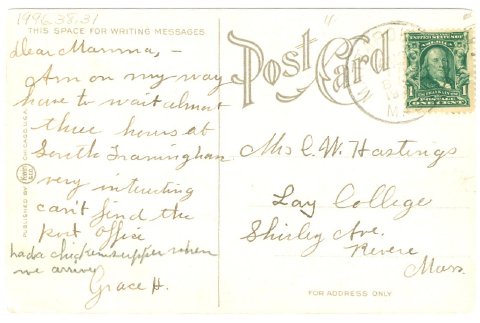 1996.38.31
THIS SPACE FOR WRITING MESSAGES
Dear Mamma, -
Am on my way
have to wait almost
three hours at
South Framingham
very interesting
can't find the
post office
had a chicken supper when
we arrive
Grace H.
PUBLISHED BY
CHICAGO, U.S.A.
4
Post Card
UNITED STATES OF AMERICA
1
1
POSTAGE
ONE CENT
Mrs C. W. Hastings
Lay College
Shirley Ave.
Revere
Mass.
FOR ADDRESS ONLY